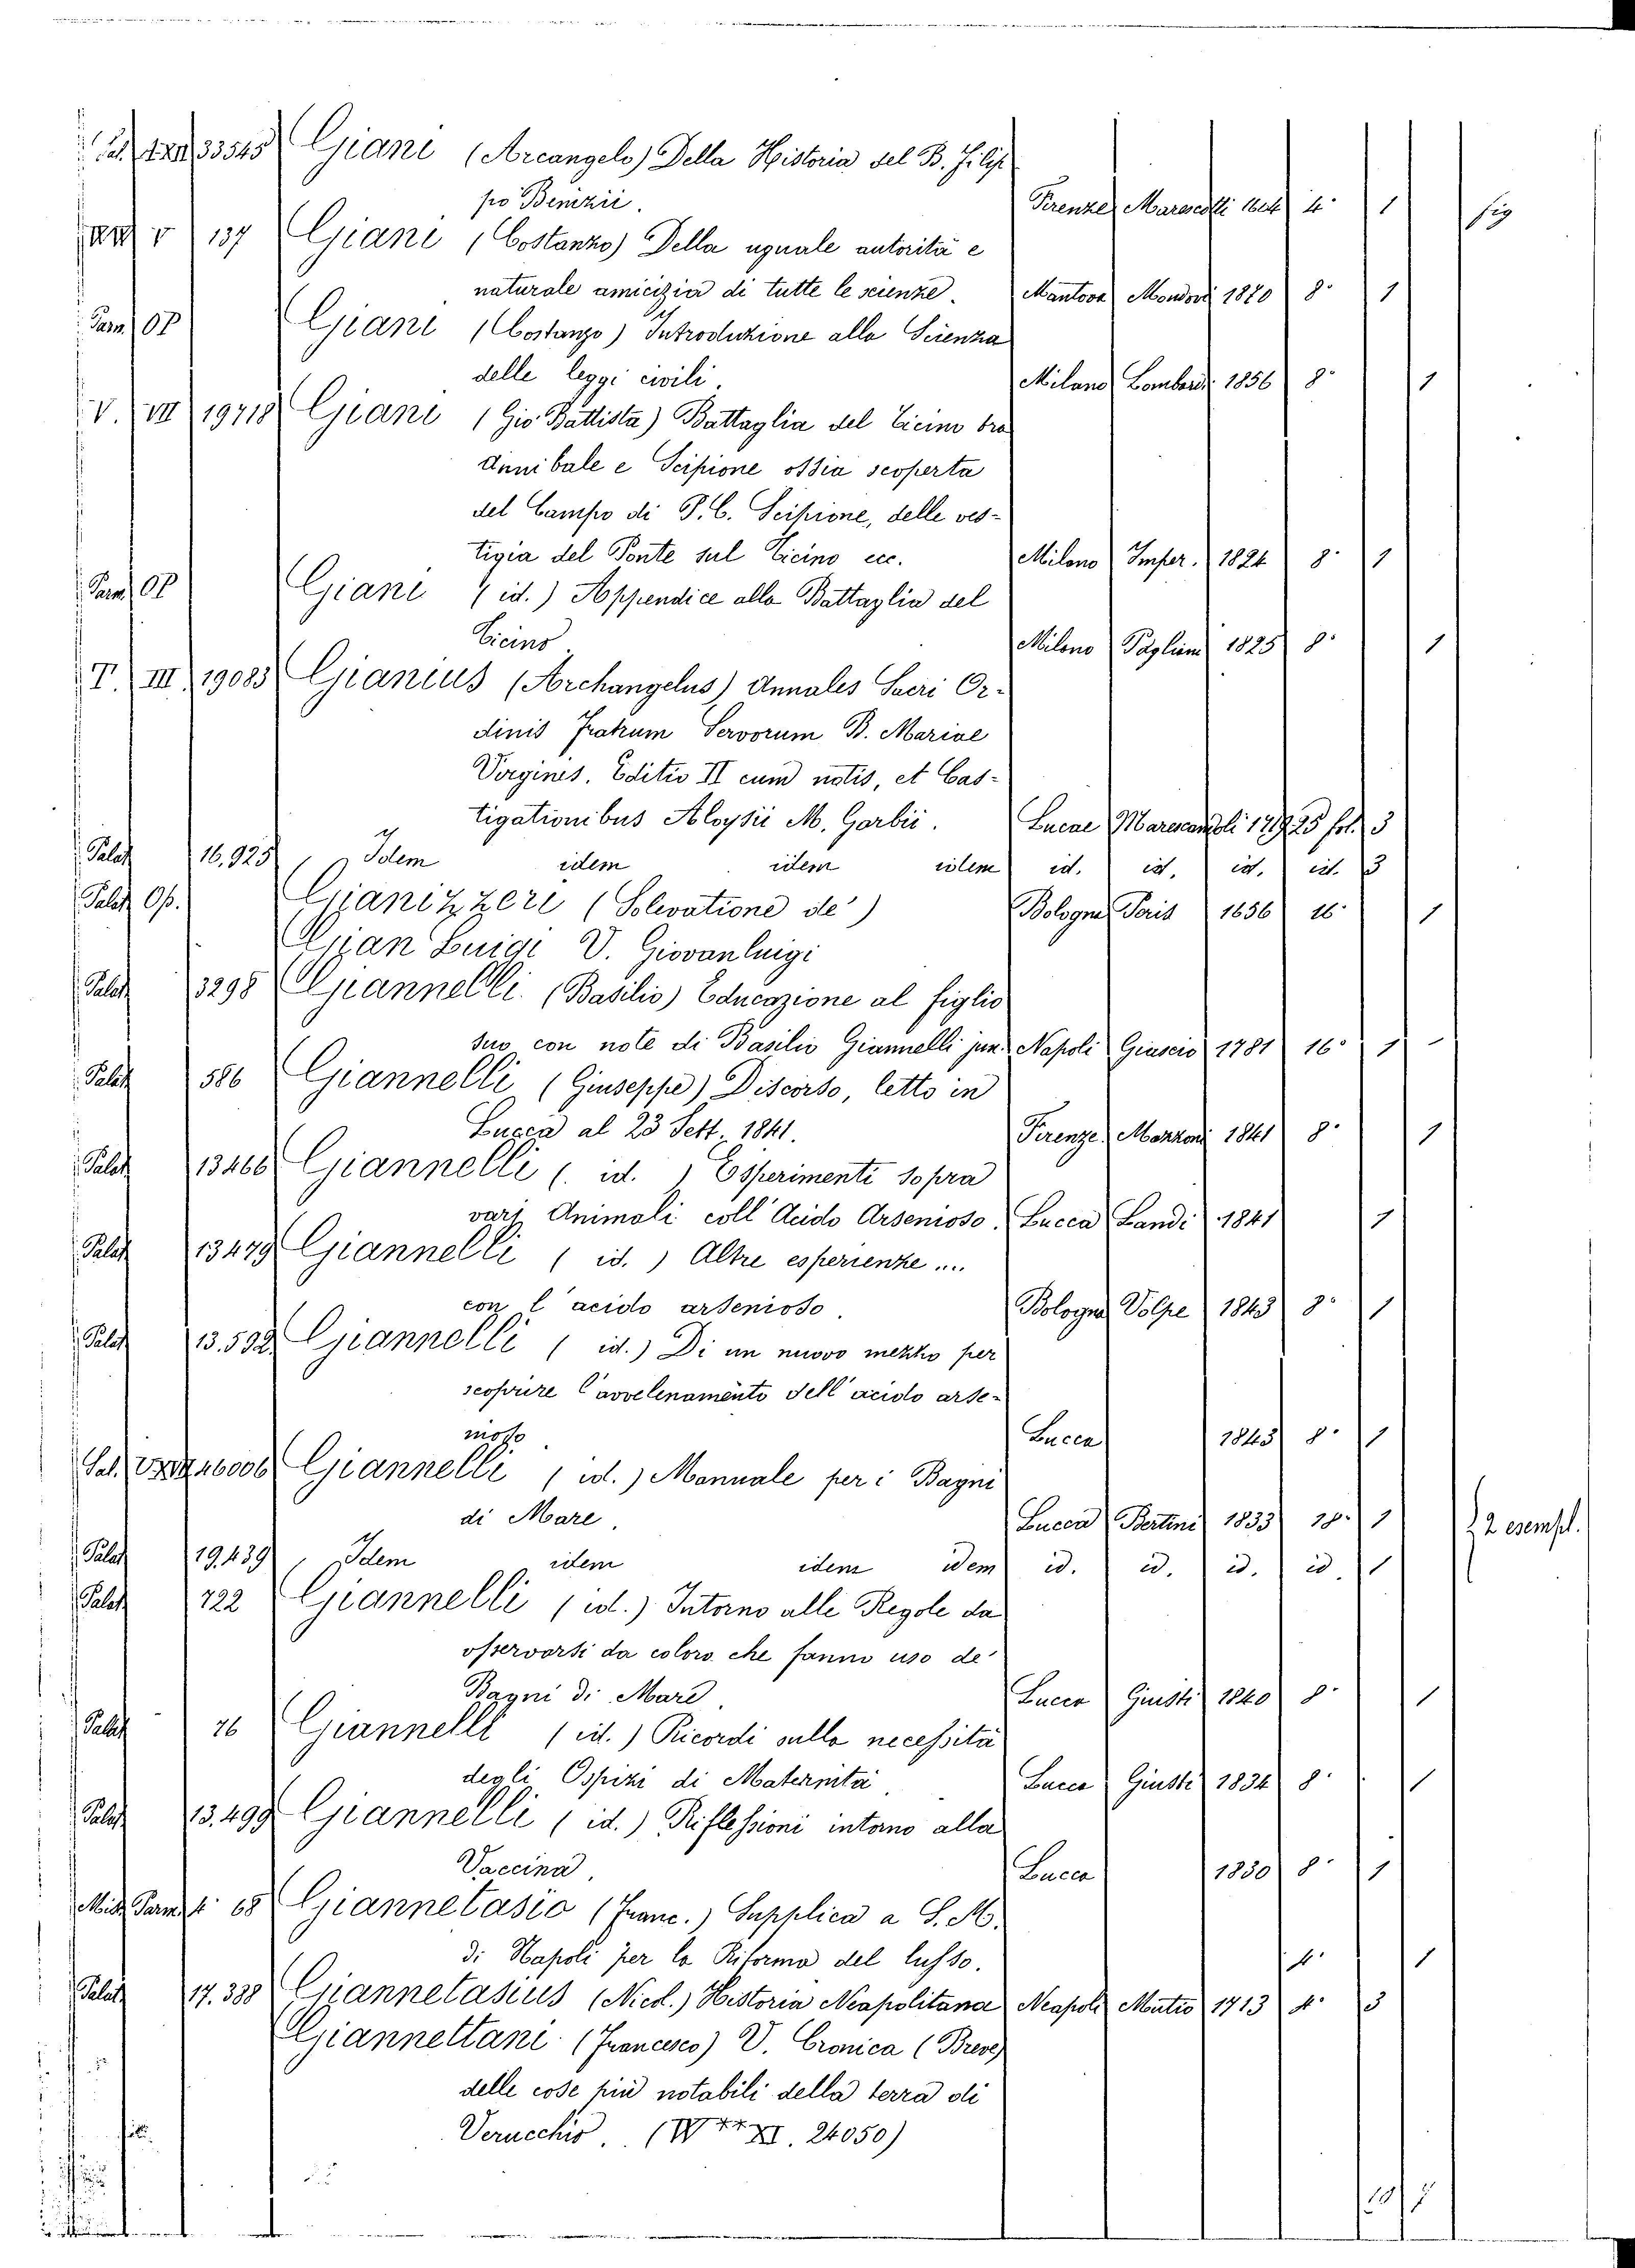 33545 Giani (Arcangelo) Della Historia del B. Filip
po Benizii. Firenze Marescotti 4° 1 fig
V 137 Giani (Costanzo) Della uguale autorità e
naturale amicizia di tutte le scienze. Mantova Mondovi 8° 1
Parm. OP Giani (Costanzo) Introduzione alla Scienza
delle leggi civili. Milano Lombardi 1856 8° 1
V. VII 19718 Giani (Gio Battista) Battaglia del Ticino tra
Annibale e Scipione ossia scoperta
del Campo di P. C. Scipione, delle ves-
tigia del Ponte sul Ticino ecc. Milano Imper. 1824 8° 1
Parm. OP Giani (id.) Appendice alla Battaglia del
Ticino Milano Pagliani 1825 8° 1
T. III 19083 Gianius (Archangelus) Annales Sacri Or-
dinis Fratrum Servorum B. Mariae
Virginis. Editio II cum notis, et Cas-
tigationibus Aloysii M. Garbii. Lucae Marescandoli fol. 3
Palat 16.925 Idem idem idem idem id. id. id. id. 3
Palat Op. Gianizzeri (Solevatione de') Bologna 1656 16° 1
Gian Luigi V. Giovanluigi
Palat 3298 Giannelli (Basilio) Educazione al figlio
suo con note di Basilio Giannelli jun. Napoli Giuscio 1781 16° 1
Palat 586 Giannelli (Giuseppe) Discorso, letto in
Lucca al 23 Sett. 1841. Firenze Mazzoni 1841 8° 1
Palat 13466 Giannelli (id.) Esperimenti sopra
varj Animali coll'Acido Arsenioso. Lucca Landi 1841 1
Palat 13479 Giannelli (id.) Altre esperienze ....
con l'acido arsenioso. Bologna Volpe 1843 8° 1
Palat 13.592 Giannelli (id.) Di un nuovo mezzo per
scoprire l'avvelenamento dell'acido arse-
nioso Lucca 1843 8° 1
Sal. 26006 Giannelli (id.) Manuale per i Bagni
di Mare. Lucca Bertini 1833 18° 1 2 esempl.
Palat 19.439 Idem idem idem idem id. id. id. id. 1
Palat 722 Giannelli (id.) Intorno alle Regole da
osservarsi da coloro che fanno uso de'
Bagni di Mare Lucca Giusti 1840 8° 1
Palat 76 Giannelli (id.) Ricordi sulla necessità
degli Ospizi di Maternità. Lucca Giusti 1834 8° 1
Palat 13.499 Giannelli (id.) Riflessioni intorno alla
Vaccina. Lucca 1830 8° 1
Misc. Parm. 4° 68 Giannetasio (Franc.) Supplica a S. M.
di Napoli per la Riforma del lusso. 4° 1
Palat 17.388 Giannetasius (Nicol.) Historia Neapolitana Neapoli Mutio 1713 4° 3
Giannettani (Francesco) V. Cronica (Breve)
delle cose più notabili della terra di
Verucchio. (W** XI. 24050)